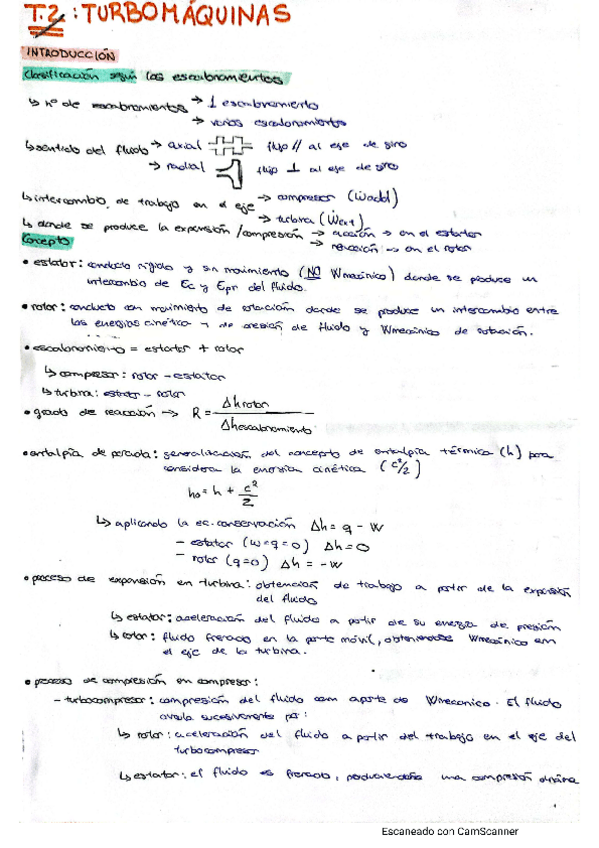 T.2: TURBOMÁQUINAS
INTRODUCCIÓN
Clasificación según los escalonamientos
↳ nº de escalonamientos → 1 escalonamiento
→ varios escalonamientos
↳ sentido del fluido → axial flujo // al eje de giro
→ radial flujo ⊥ al eje de giro
↳ intercambio de trabajo en el eje → compresor (Ẇadd)
→ turbina (Ẇext)
↳ donde se produce la expansión/compresión → acción → en el estator
→ reacción → en el rotor
Concepto
• estator: conducto rígido y sin movimiento (NO Wmecánico) donde se produce un
intercambio de Ec y Epr del fluido.
• rotor: conducto con movimiento de rotación donde se produce un intercambio entre
las energías cinética y de presión de fluido y Wmecánico de rotación.
• escalonamiento = estator + rotor
↳ compresor: rotor - estator
↳ turbina: estator - rotor
• grado de reacción → R = Δhrotor / Δhescalonamiento
• entalpía de parada: generalización del concepto de entalpía térmica (h) para
considerar la energía cinética (c²/2)
h₀ = h + c²/2
↳ aplicando la ec. conservación Δh = q - w
- estator (w=q=0) Δh = 0
- rotor (q=0) Δh = -w
• proceso de expansión en turbina: obtención de trabajo a partir de la expansión
del fluido
↳ estator: aceleración del fluido a partir de su energía de presión
↳ rotor: fluido frenado en la parte móvil, obteniéndose Wmecánico en
el eje de la turbina.
• proceso de compresión en compresor:
- turbocompresor: compresión del fluido con aporte de Wmecanico. El fluido
circula sucesivamente por:
↳ rotor: aceleración del fluido a partir del trabajo en el eje del
turbocompresor
↳ estator: el fluido es frenado, una compresión
Escaneado con CamScanner